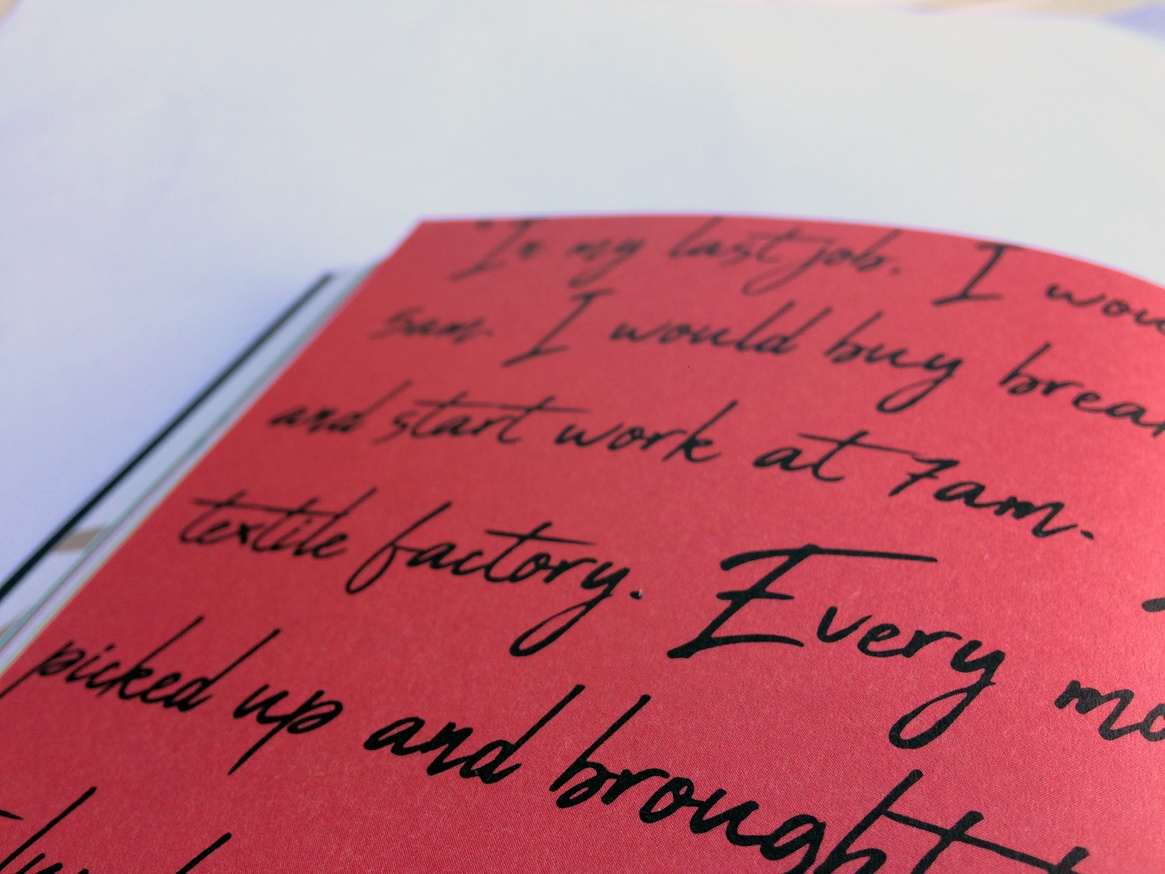 "In my last job. I wou
5am. I would buy break
and start work at 7am.
textile factory. Every mo
picked up and brought t